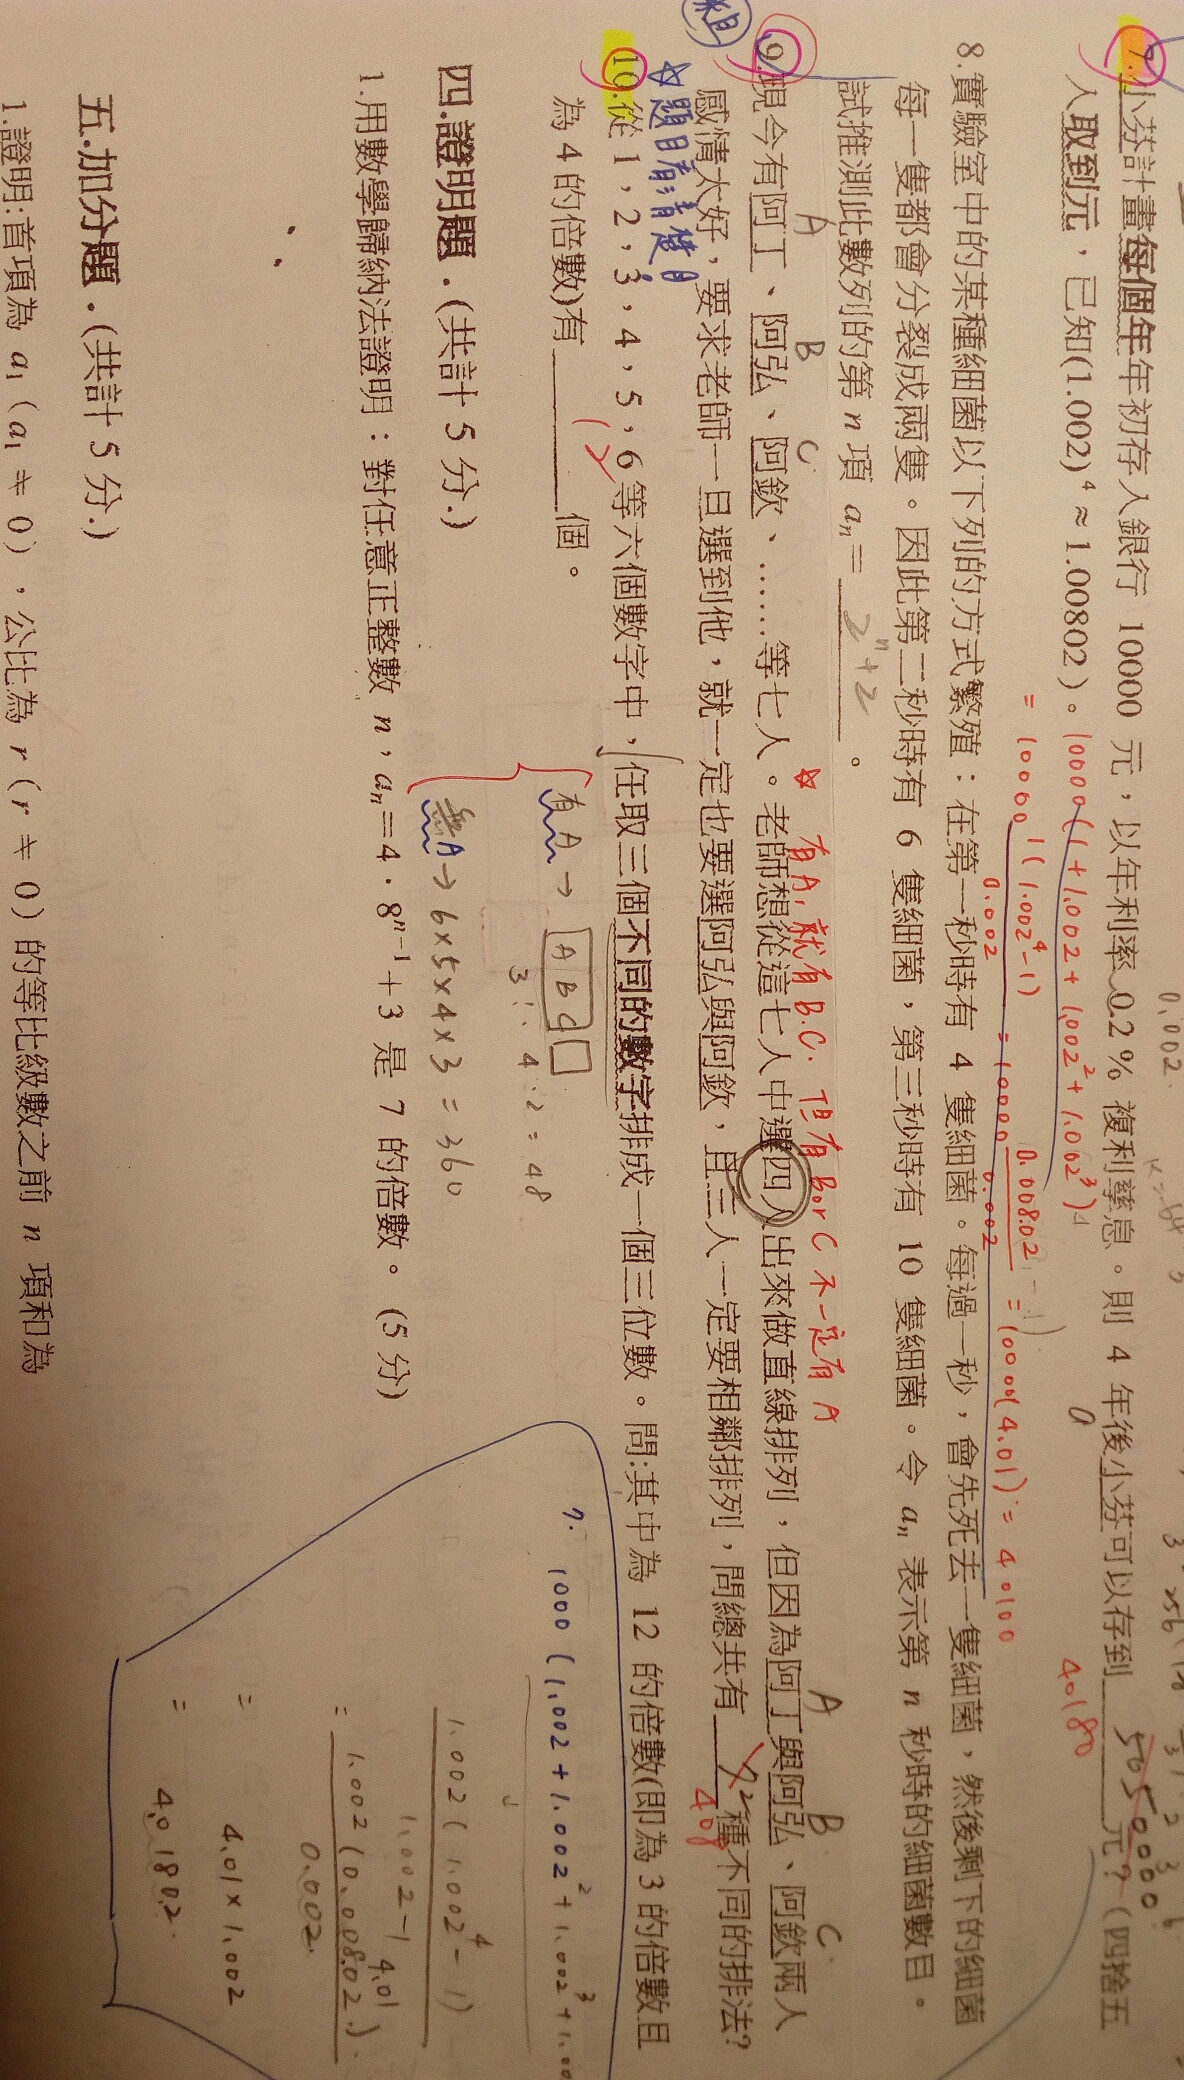 7.小芬計畫每個年年初存入銀行 10000 元，以年利率 0.2% 複利孳息。則 4 年後小芬可以存到 5050000 元？(四捨五
0.002
40180
入取到元，已知(1.002)⁴≈1.00802)。1000(1+1.002+1.002²+1.002³)
= 10000 (1.002⁴-1) / 0.002 = 10000 0.00802 / 0.002 = 10000(4.01) = 40100
8.實驗室中的某種細菌以下列的方式繁殖：在第一秒時有 4 隻細菌。每過一秒，會先死去一隻細菌，然後剩下的細菌
每一隻都會分裂成兩隻。因此第二秒時有 6 隻細菌，第三秒時有 10 隻細菌。令 aₙ 表示第 n 秒時的細菌數目。
試推測此數列的第 n 項 aₙ= 2ⁿ+2 。
☆ 有A,就有B.C. 但有BorC不一定有A
A B C A B C
9.現今有阿丁、阿弘、阿欽、……等七人。老師想從這七人中選四人出來做直線排列，但因為阿丁與阿弘、阿欽兩人
感情太好，要求老師一旦選到他，就一定也要選阿弘與阿欽，且三人一定要相鄰排列，問總共有 種不同的排法?
408
☆題目看清楚
10.從 1，2，3，4，5，6 等六個數字中，任取三個不同的數字排成一個三位數。問:其中為 12 的倍數(即為 3 的倍數且
為 4 的倍數)有 個。
有A→ A B C □
3!·4·2=48
無A→6×5×4×3=360
7. 1000(1.002+1.002²+1.002³+1.00
1.002(1.002⁴-1)
1.002-1
4.01
= 1.002(0.00802)
0.002
= 4.01×1.002
= 4.01802
四.證明題.(共計 5 分.)
1.用數學歸納法證明：對任意正整數 n，aₙ=4·8ⁿ⁻¹+3 是 7 的倍數。(5 分)
五.加分題.(共計 5 分.)
1.證明:首項為 a₁(a₁≠0)，公比為 r(r≠0)的等比級數之前 n 項和為